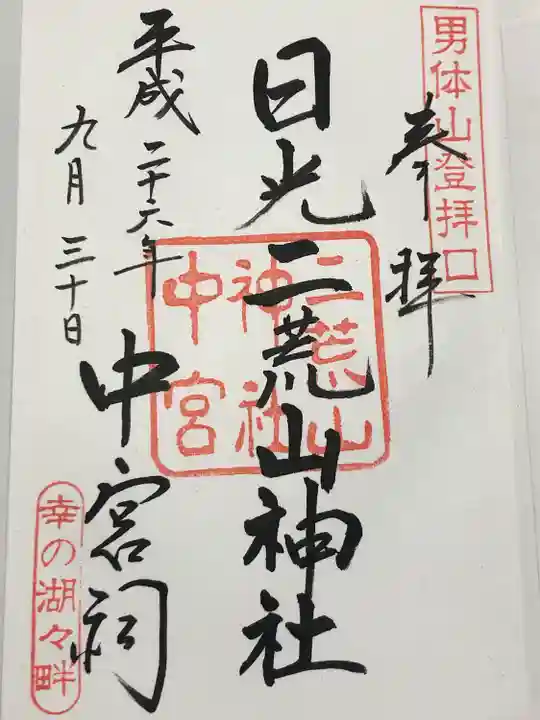 男体山登拝口
奉拝
日光二荒山神社
中宮祠
二荒山
神社
中宮
平成二十六年
九月三十日
幸の湖々畔